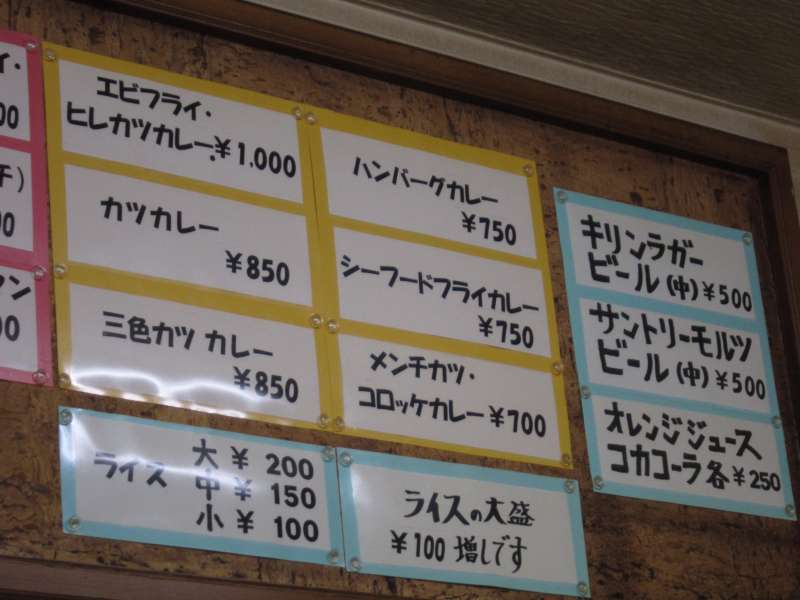 イ・
00
チ)
00
タン
00
エビフライ・
ヒレカツカレー ¥1.000
カツカレー
¥850
三色カツ カレー
¥850
ハンバーグカレー
¥750
シーフードフライカレー
¥750
メンチカツ・
コロッケカレー ¥700
キリンラガー
ビール(中)¥500
サントリーモルツ
ビール(中)¥500
オレンジジュース
コカコーラ各¥250
ライス 大 ¥ 200
中 ¥ 150
小 ¥ 100
ライスの大盛
¥100 増しです